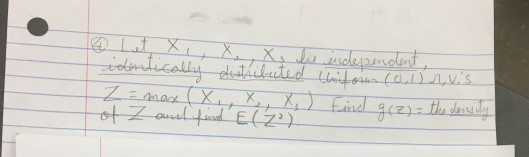 ④ Let X₁, X₂, X₃ be independent,
identically distributed Uniform (0,1) r.v.'s
Z = max (X₁, X₂, X₃) Find g(z) = the density
of Z and find E(Z²).